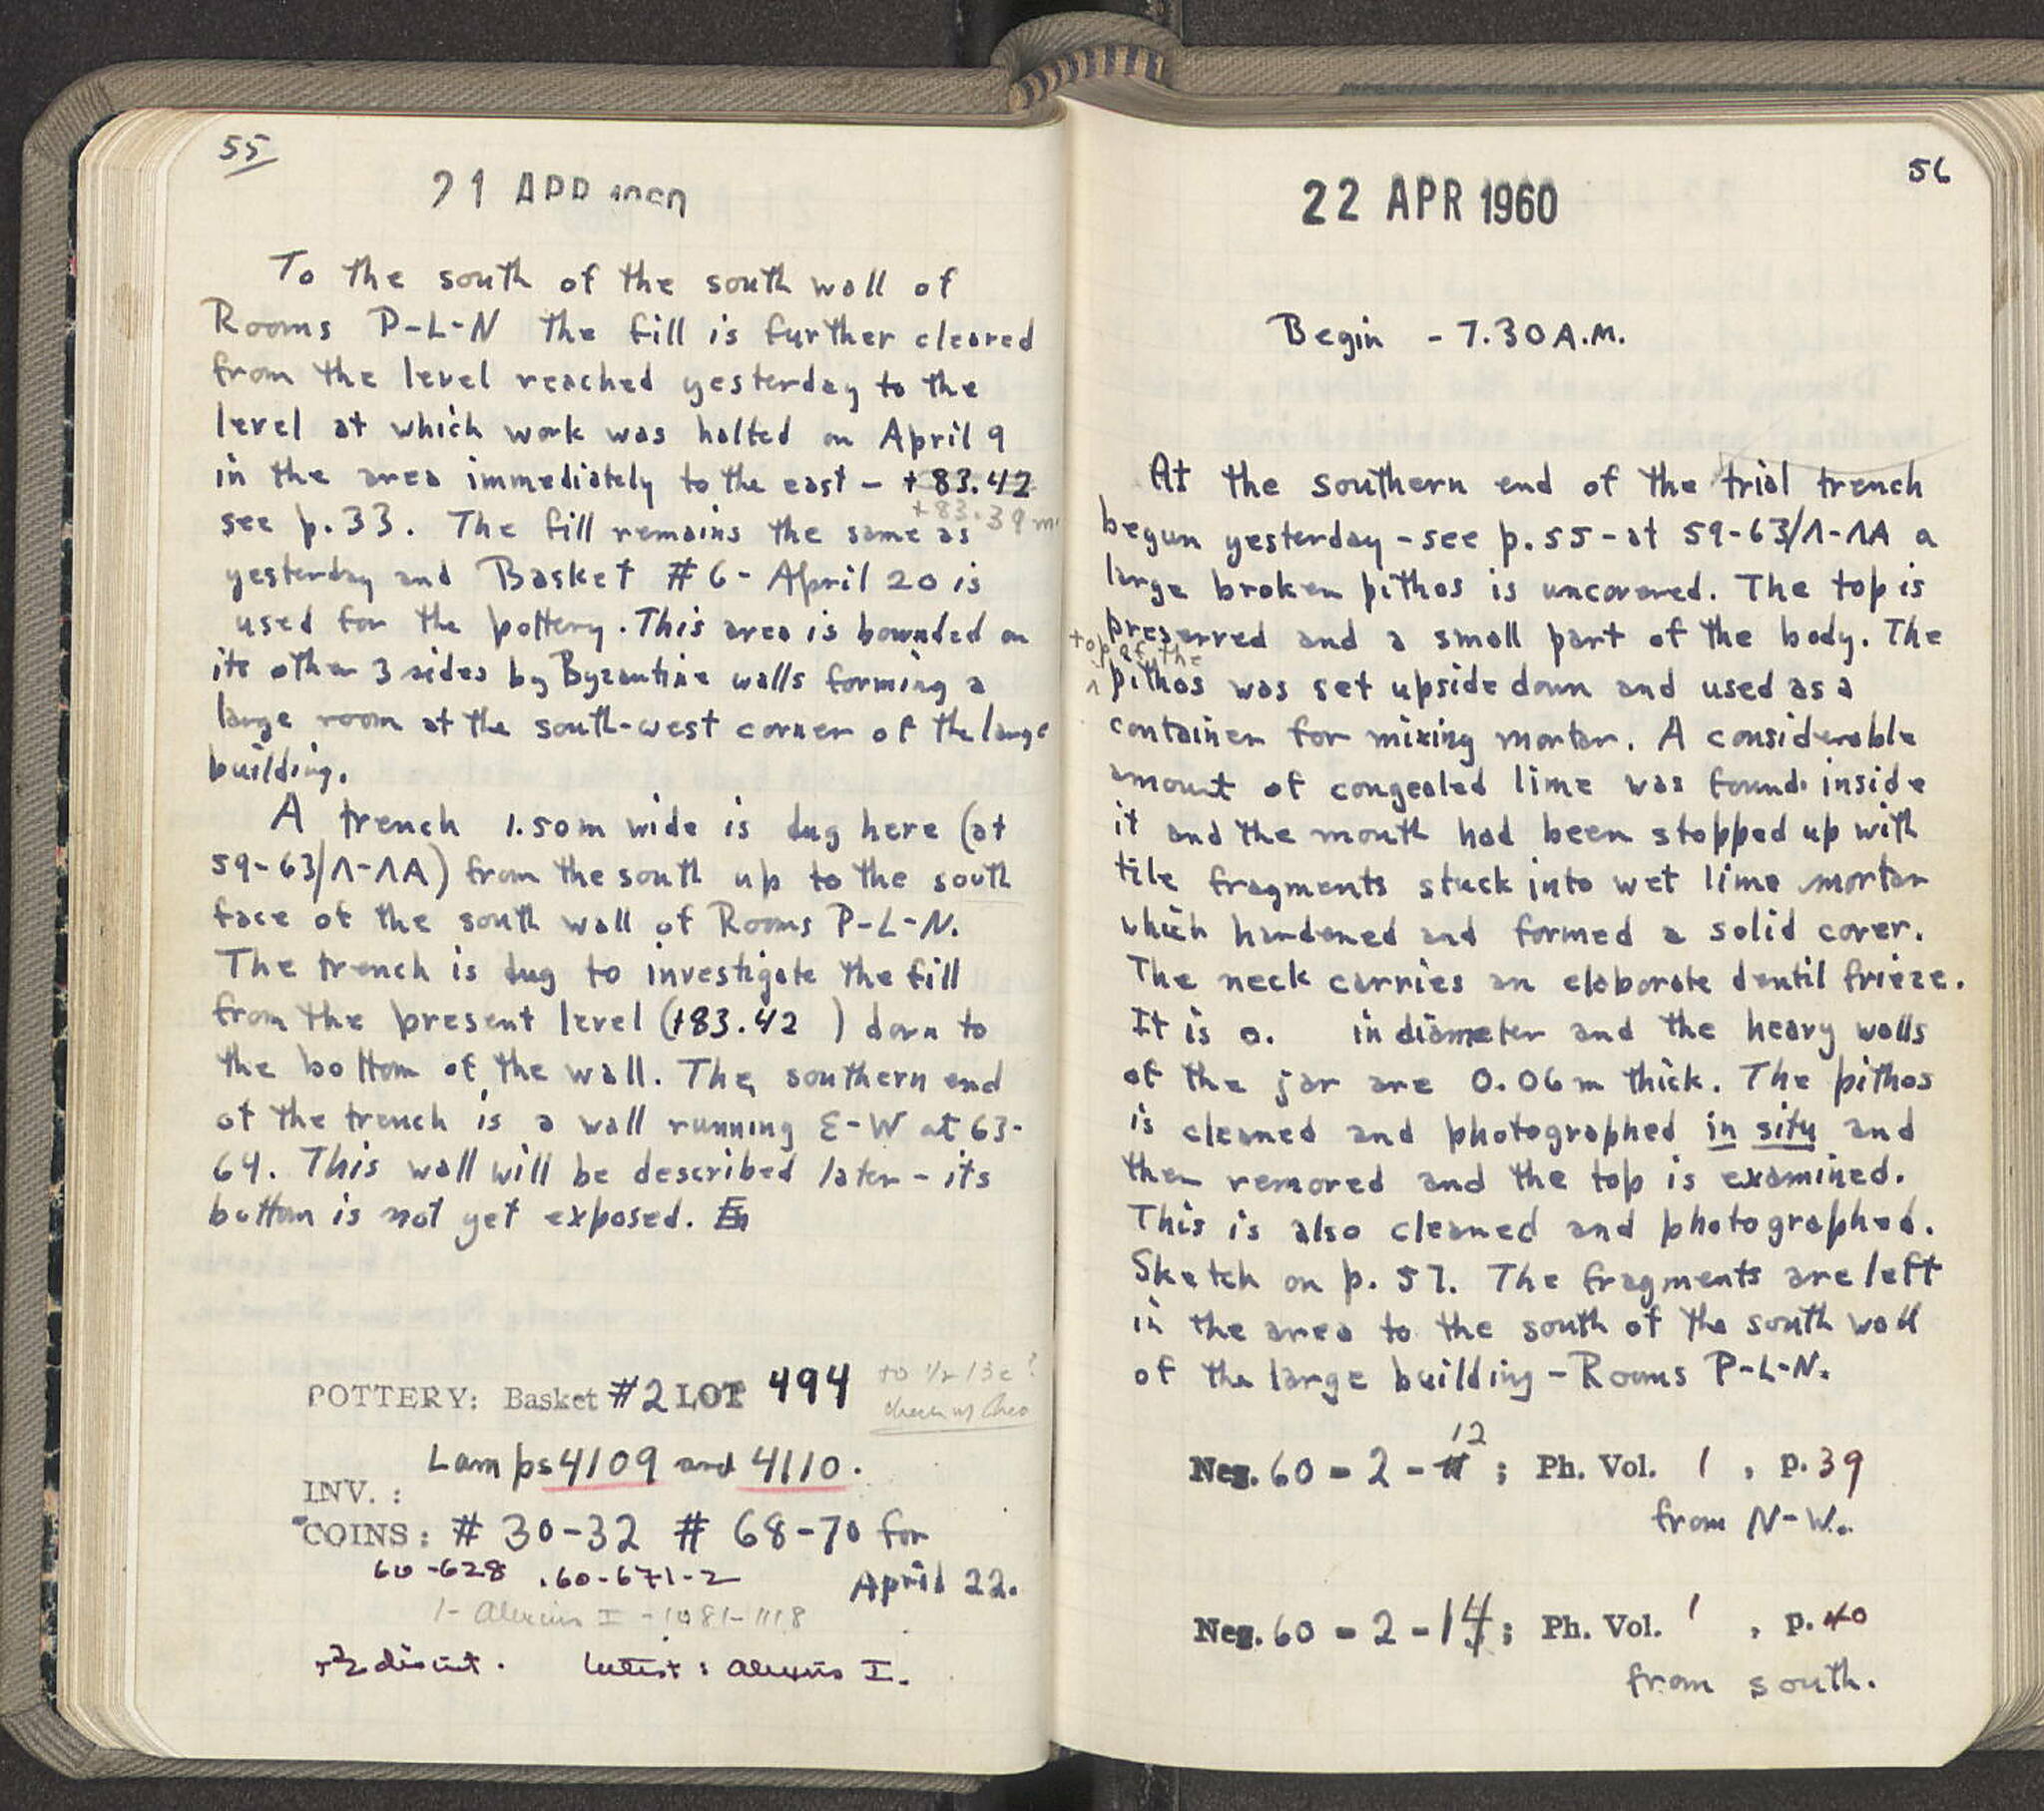 55
21 APR 1960
To the south of the south wall of
Rooms P-L-N the fill is further cleared
from the level reached yesterday to the
level at which work was halted on April 9
in the area immediately to the east - +83.42
+83.39 m.
see p.33. The fill remains the same as
yesterday and Basket #6 - April 20 is
used for the pottery. This area is bounded on
its other 3 sides by Byzantine walls forming a
large room at the south-west corner of the large
building.
A trench 1.50m wide is dug here (at
59-63/Λ-ΛA) from the south up to the south
face of the south wall of Rooms P-L-N.
The trench is dug to investigate the fill
from the present level (+83.42 ) down to
the bottom of the wall. The southern end
of the trench is a wall running E-W at 63-
64. This wall will be described later - its
bottom is not yet exposed.
POTTERY: Basket #2 LOT 494
to 1/2 13c?
check w/
Lamps 4109 and 4110.
INV. :
COINS: # 30-32 # 68-70 for
April 22.
60-628 .60-671-2
1- Alexius I - 1081-1118
+2 disint. latest: Alexius I.
56
22 APR 1960
Begin - 7.30 A.M.
At the southern end of the trial trench
begun yesterday - see p.55 - at 59-63/Λ-ΛA a
large broken pithos is uncovered. The top is
preserved and a small part of the body. The
top of the
^ pithos was set upside down and used as a
container for mixing mortar. A considerable
amount of congealed lime was found inside
it and the mouth had been stopped up with
tile fragments stuck into wet lime mortar
which hardened and formed a solid cover.
The neck carries an elaborate dentil frieze.
It is 0. in diameter and the heavy walls
of the jar are 0.06m thick. The pithos
is cleaned and photographed in situ and
then removed and the top is examined.
This is also cleaned and photographed.
Sketch on p. 57. The fragments are left
in the area to the south of the south wall
of the large building - Rooms P-L-N.
12
Neg. 60 - 2 - 11 ; Ph. Vol. 1 , p. 39
from N-W.
Neg. 60 - 2 - 14 ; Ph. Vol. 1 , p. 40
from south.